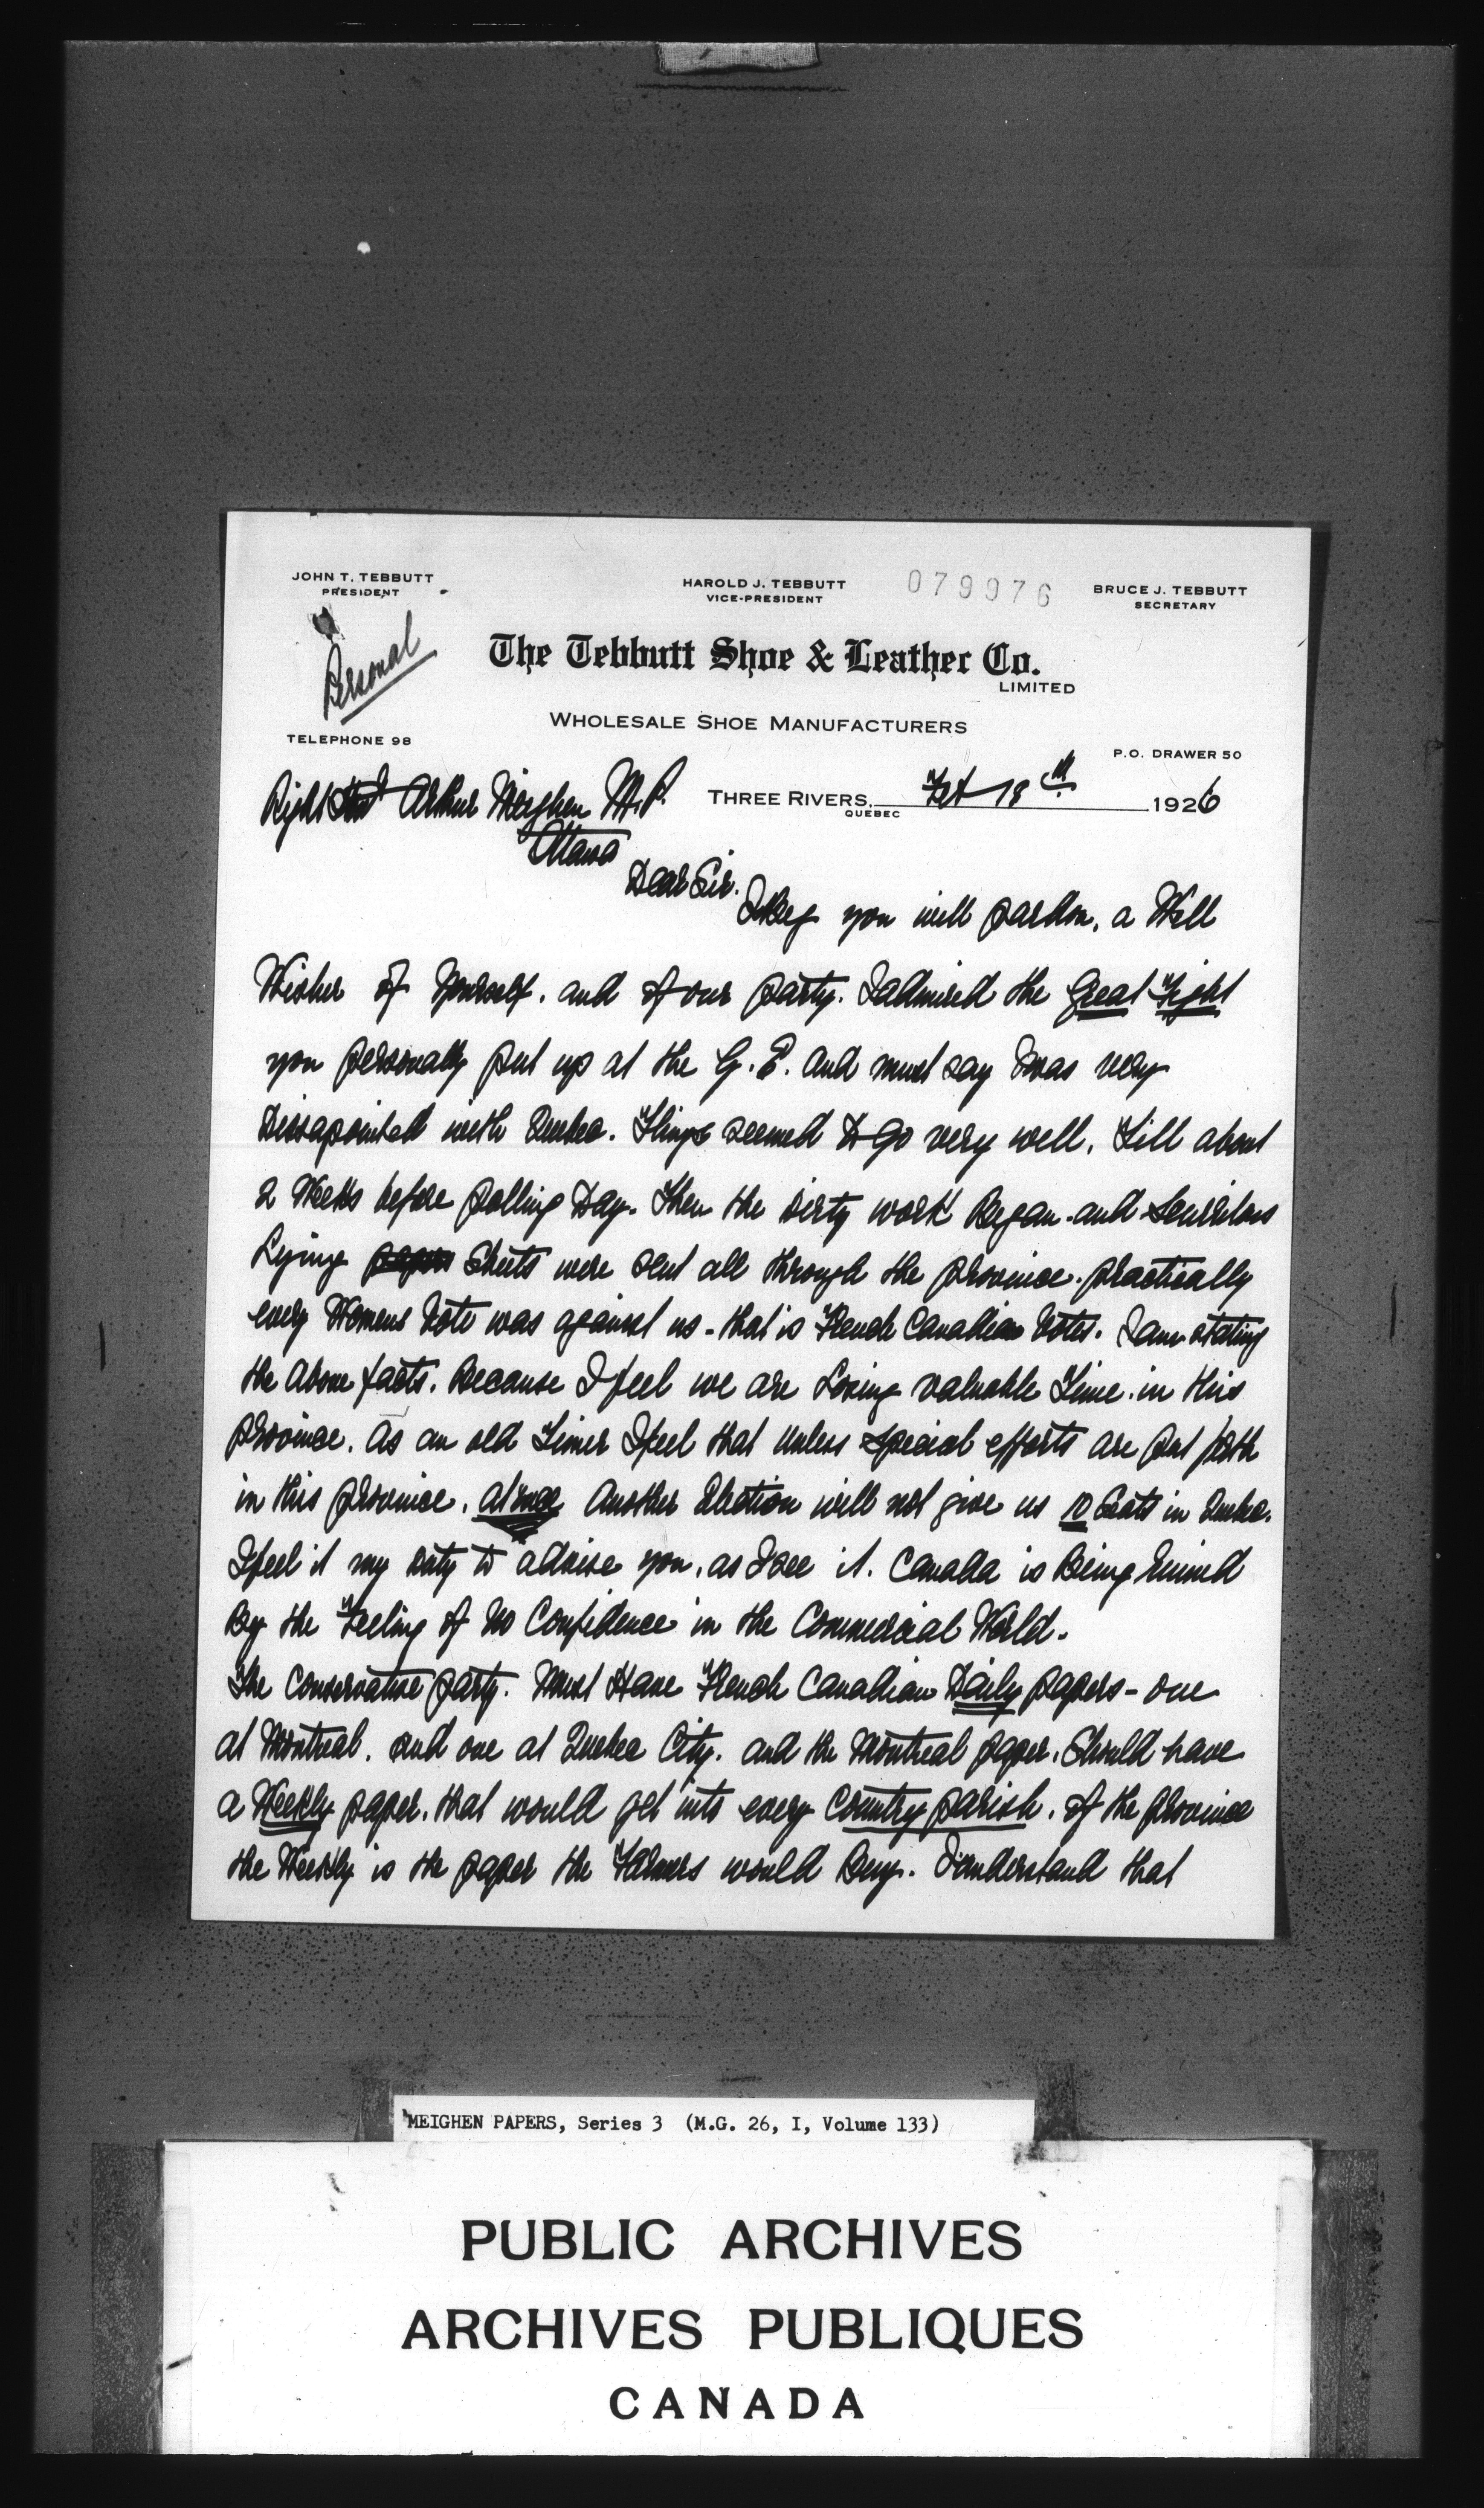 JOHN T. TEBBUTT
PRESIDENT
HAROLD J. TEBBUTT
VICE-PRESIDENT
079976
BRUCE J. TEBBUTT
SECRETARY
Personal
The Tebbutt Shoe & Leather Co.
LIMITED
WHOLESALE SHOE MANUFACTURERS
TELEPHONE 98
P.O. DRAWER 50
THREE RIVERS, Feb 18th 1926
QUEBEC
Right Hon Arthur Meighen M.P.
Ottawa
Dear Sir.
I Beg you will pardon, a Well
Wisher of Yourself. and of our party. I admired the Great Fight
you personally put up at the G. E. and must say I was very
Dissapointed with Quebec. Things seemed to go very well, Till about
2 Weeks before polling Day. Then the Dirty work Began. and Scurrilous
Lying Sheets were sent all through the province. practically
every Womens Vote was against us - that is French Canadian Votes. I am stating
the above facts. Because I feel we are Losing valuable Time. in this
province. As an old Timer I feel that unless special efforts are put forth
in this province. at once Another Election will not give us 10 Seats in Quebec.
I feel it my Duty to advise you, as I see it. Canada is Being Ruined
By the Feeling of No Confidence in the Commercial World.
The Conservative party. Must Have French Canadian Daily papers - one
at Montreal. and one at Quebec City. and the Montreal paper. Should have
a Weekly paper. that would get into every Country parish. of the province
the Weekly is the paper the Farmers would Buy. I understand that
MEIGHEN PAPERS, Series 3 (M.G. 26, I, Volume 133)
PUBLIC ARCHIVES
ARCHIVES PUBLIQUES
CANADA